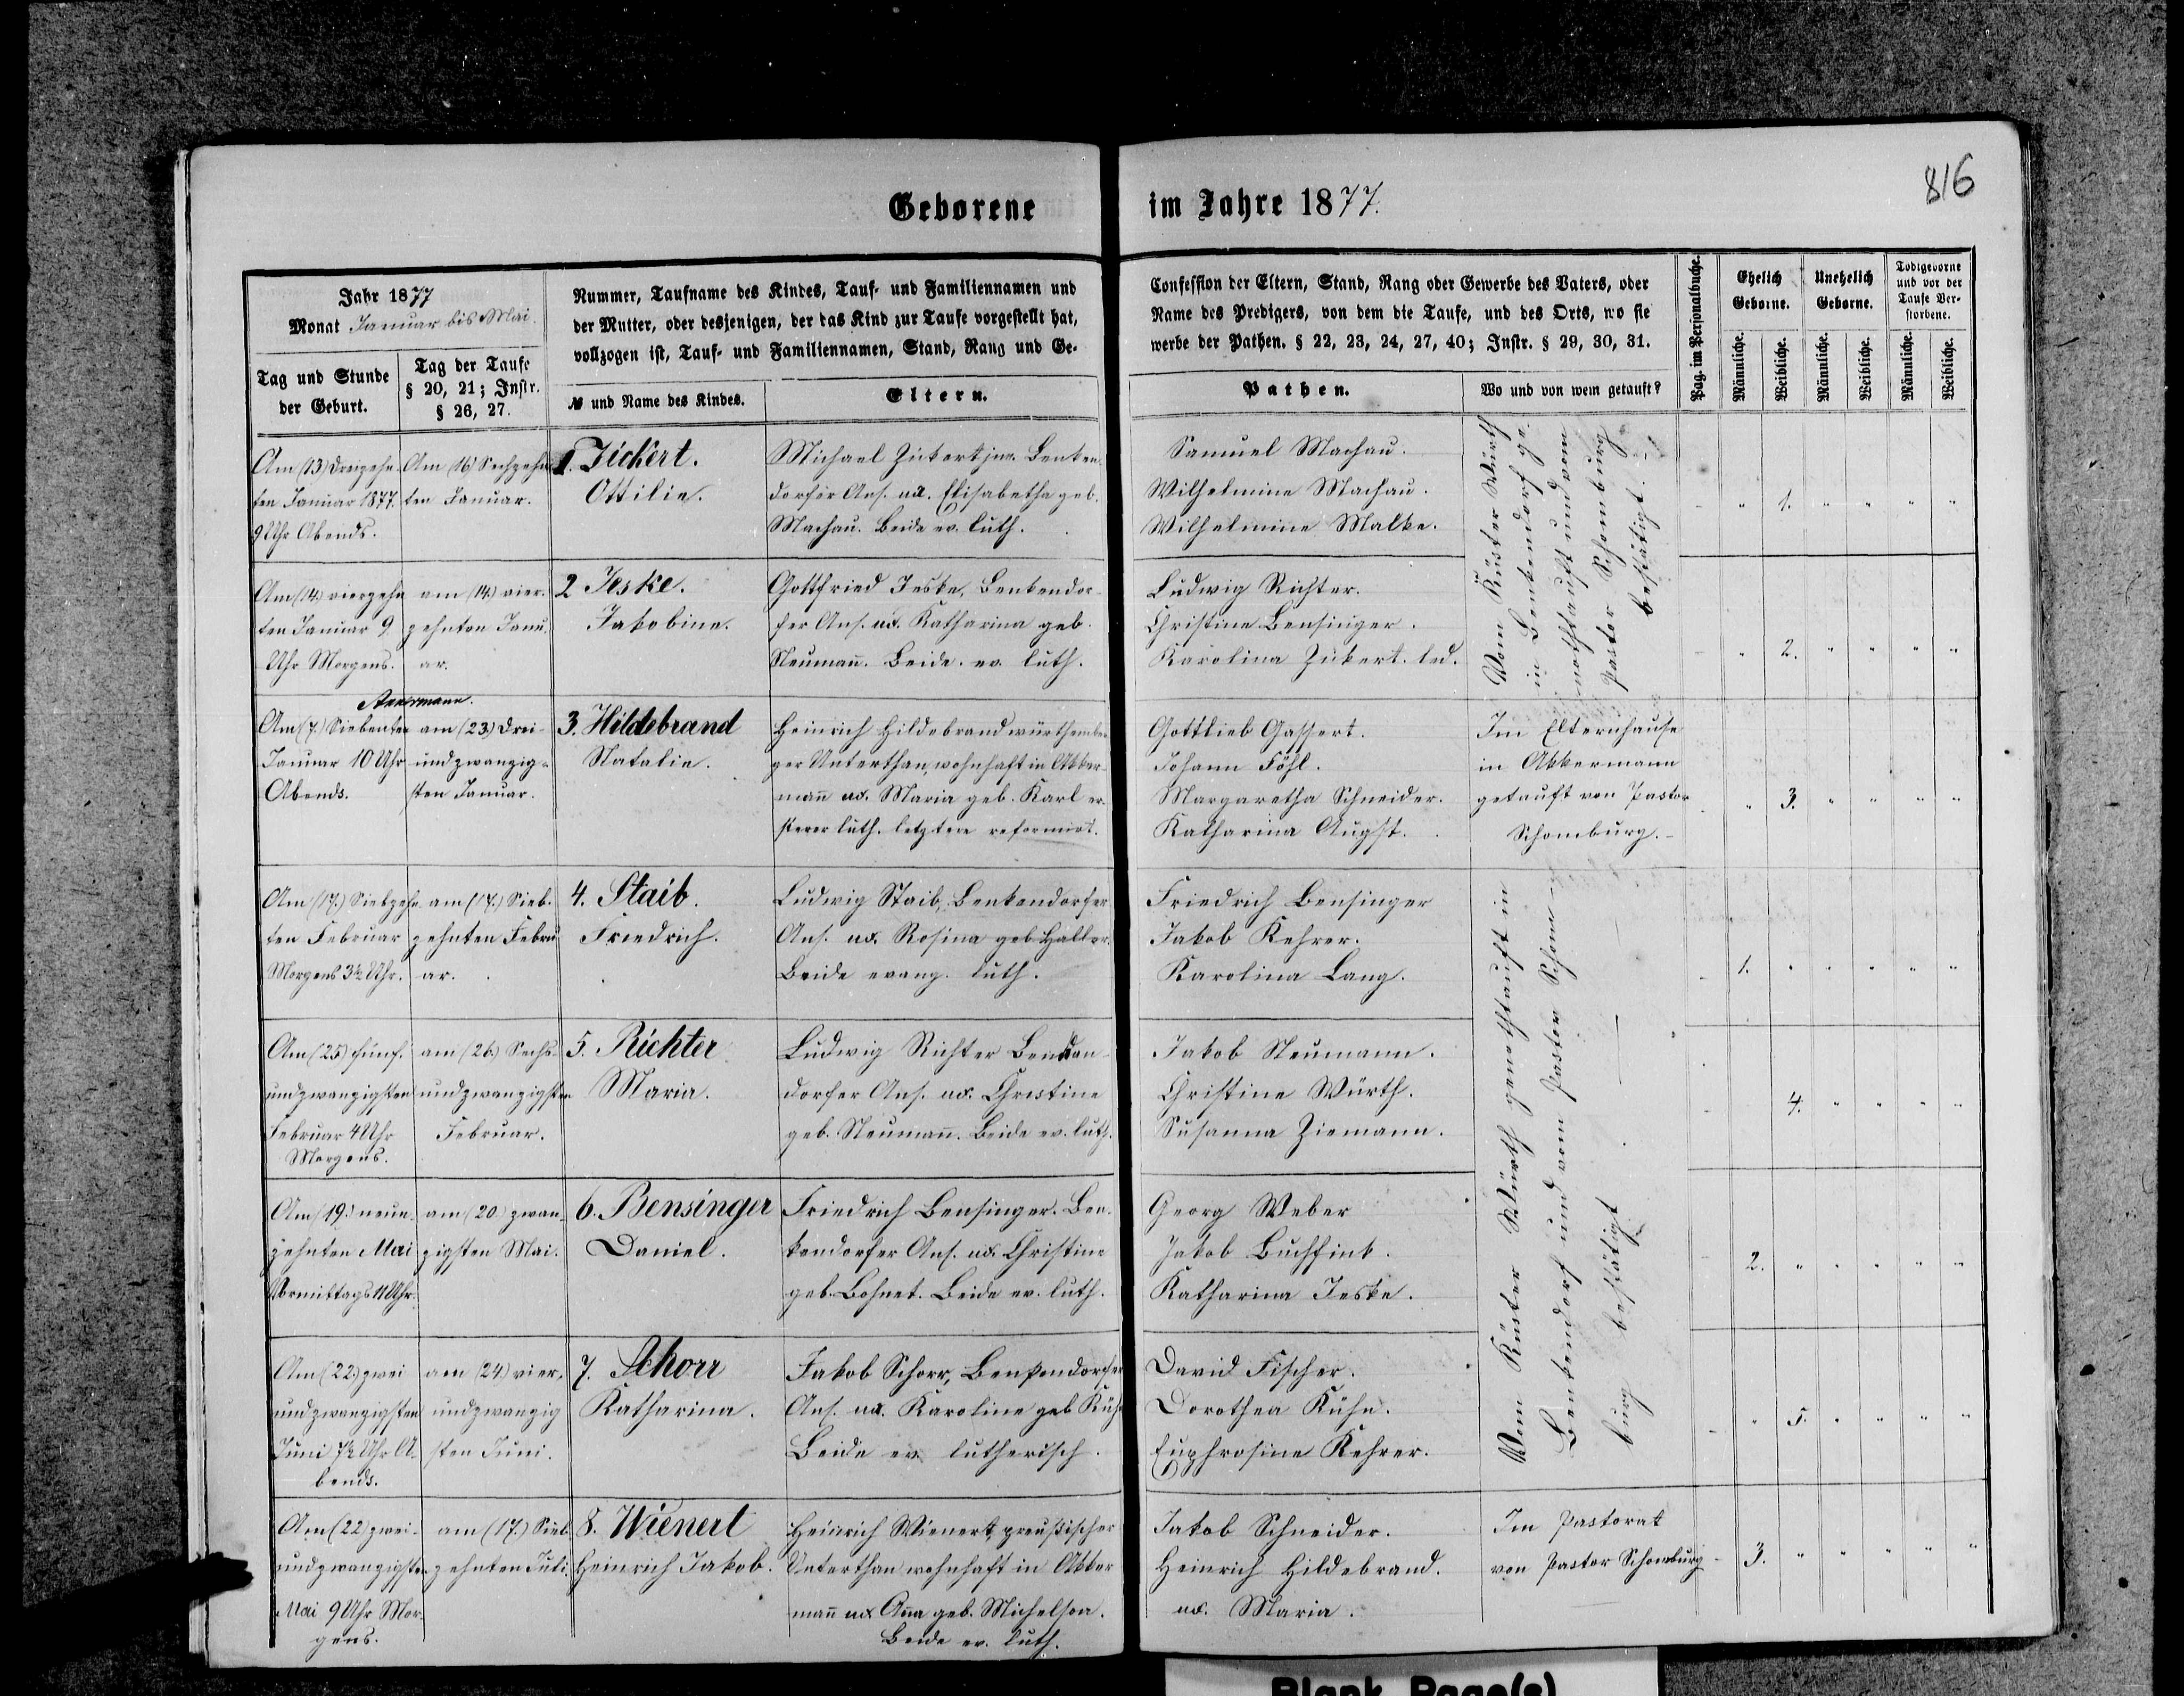 816
Geborene im Jahre 1877.
Jahr 1877
Monat Januar bis Mai.
Tag und Stunde
der Geburt.
Tag der Taufe
§ 20, 21; Instr.
§ 26, 27.
Nummer, Taufname des Kindes, Tauf- und Familiennamen und
der Mutter, oder desjenigen, der das Kind zur Taufe vorgestellt hat,
vollzogen ist, Tauf- und Familiennamen, Stand, Rang und Ge-
№ und Name des Kindes.
Eltern.
Confession der Eltern, Stand, Rang oder Gewerbe des Vaters, oder
Name des Predigers, von dem die Taufe, und des Orts, wo sie
werbe der Pathen. § 22, 23, 24, 27, 40; Instr. § 29, 30, 31.
Pathen.
Wo und von wem getauft?
Pag. im Personalbuche.
Ehelich
Geborne.
Unehelich
Geborne.
Todtgeborne
und vor der
Taufe Ver-
storbene.
Männliche.
Weibliche.
Männliche.
Weibliche.
Männliche.
Weibliche.
Am (13) dreizehn
ten Januar 1877.
9 Uhr Abends.
Am (16) Sechzehn
ten Januar.
1. Zickert.
Ottilie.
Michael Zükert jun. Benken
dorfer Ans. ux. Elisabetha geb.
Machau. Beide ev. luth.
Samuel Machau.
Wilhelmine Machau.
Wilhelmine Malke.
Vom Küster Würth
in Benkendorf ge-
nothtauft und vom
Pastor Schomburg
bestätigt.
1.
Am (14.) vierzehn
ten Januar 9
Uhr Morgens.
am (14.) vier-
zehnten Janu-
ar.
2 Jeske.
Jakobine.
Gottfried Jeske, Benkendor-
fer Ans. ux. Katharina geb.
Neumañ. Beide ev. luth.
Ludwig Richter.
Christine Bensinger.
Karolina Zükert. led.
2.
Akkermann.
Am (7.) Siebenten
Januar 10 Uhr
Abends.
am (23.) drei-
undzwanzig-
sten Januar.
3. Hildebrand
Natalie.
Heinrich Hildebrand würthember
ger Unterthan, wohnhaft in Akker-
mañ ux. Maria geb. Karl er-
sterer luth. letztere reformirt.
Gottlieb Gassert.
Johann Föhl.
Margaretha Schneider.
Katharina Augst.
Im Elternhause
in Akkermann
getauft von Pastor
Schomburg.
3.
Am (17.) Siebzehn
ten Februar
Morgens 3½ Uhr.
am (17.) Sieb-
zehnten Febru
ar.
4. Staib.
Friedrich.
Ludwig Staib, Benkendorfer
Ans. ux. Rosina geb. Haller.
Beide evang. luth.
Friedrich Bensinger
Jakob Kehrer.
Karolina Lang.
Vom Küster Würth genothtauft in
Benkendorf und vom Pastor Schom-
burg bestätigt
1.
Am (25) fünf-
undzwanzigsten
Februar 4 Uhr
Morgens.
am (26.) Sechs-
undzwanzigsten
Februar.
5. Richter
Maria.
Ludwig Richter Benken-
dorfer Ans. ux. Christine
geb. Neumañ. Beide ev. luth.
Jakob Neumann.
Christine Würth.
Susanna Ziemann.
4.
Am (19.) neun-
zehnten Mai
Vormittags 11 Uhr.
am (20.) zwan-
zigsten Mai.
6. Bensinger
Daniel.
Friedrich Bensinger. Ben-
kendorfer Ans. ux. Christine
geb. Bohnet. Beide ev. luth.
Georg Weber
Jakob Buchfink.
Katharina Jeske.
2.
Am (22.) zwei
undzwanzigsten
Juni 7½ Uhr A-
bends.
am (24.) vier-
undzwanzig
sten Juni.
7. Schorr
Katharina.
Jakob Schorr, Benkendorfer
Ans. ux. Karoline geb. Kühn
Beide ev. lutherisch.
David Fischer.
Dorothea Kühn.
Euphrosine Kehrer.
5.
Am (22) zwei-
undzwanzigsten
Mai 9 Uhr Mor-
gens.
am (17.) Sieb
zehnten Juli.
8. Wienert
Heinrich Jakob.
Heinrich Wienert, preußischer
Unterthan wohnhaft in Akker
mañ ux. Aña geb. Michelson.
Beide ev. luth.
Jakob Schneider.
Heinrich Hildebrand.
ux. Maria.
Im Pastorat
von Pastor Schomburg
3.
Blank Page(s)